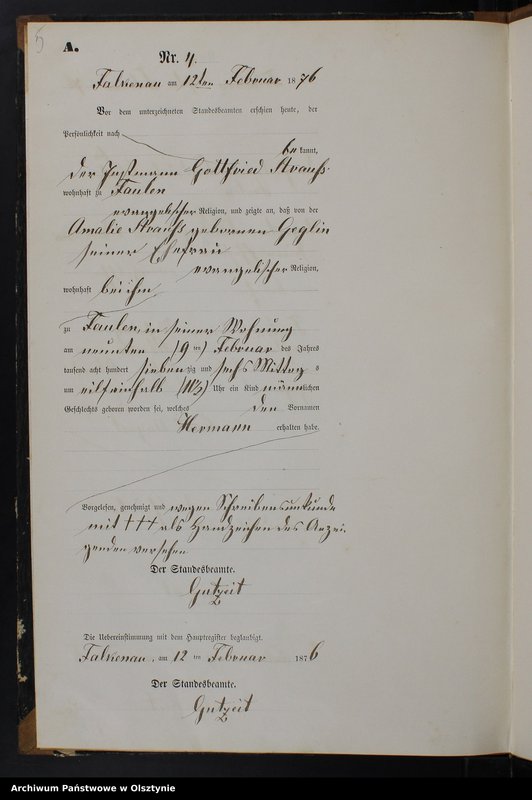 5
A.
Nr. 4.
Falkenau am 12ten Februar 1876
Vor dem unterzeichneten Standesbeamten erschien heute, der
Persönlichkeit nach
bekannt,
der Instmann Gottfried Strauss
wohnhaft zu Faulen
evangelischer Religion, und zeigte an, daß von der
Amalie Strauss geborenen Geglin
seiner Ehefrau
evangelischer Religion,
wohnhaft bei ihm
zu Faulen, in seiner Wohnung
am neunten (9 ten) Februar des Jahres
tausend acht hundert siebenzig und sechs Mittags
um eilfeinhalb (11½) Uhr ein Kind männlichen
Geschlechts geboren worden sei, welches den Vornamen
Hermann erhalten habe.
Vorgelesen, genehmigt und wegen Schreibensunkunde
mit +++ als Handzeichen des Anzei-
genden versehen
Der Standesbeamte.
Gutzeit
Die Uebereinstimmung mit dem Hauptregister beglaubigt.
Falkenau, am 12 ten Februar 1876
Der Standesbeamte.
Gutzeit
Archiwum Państwowe w Olsztynie